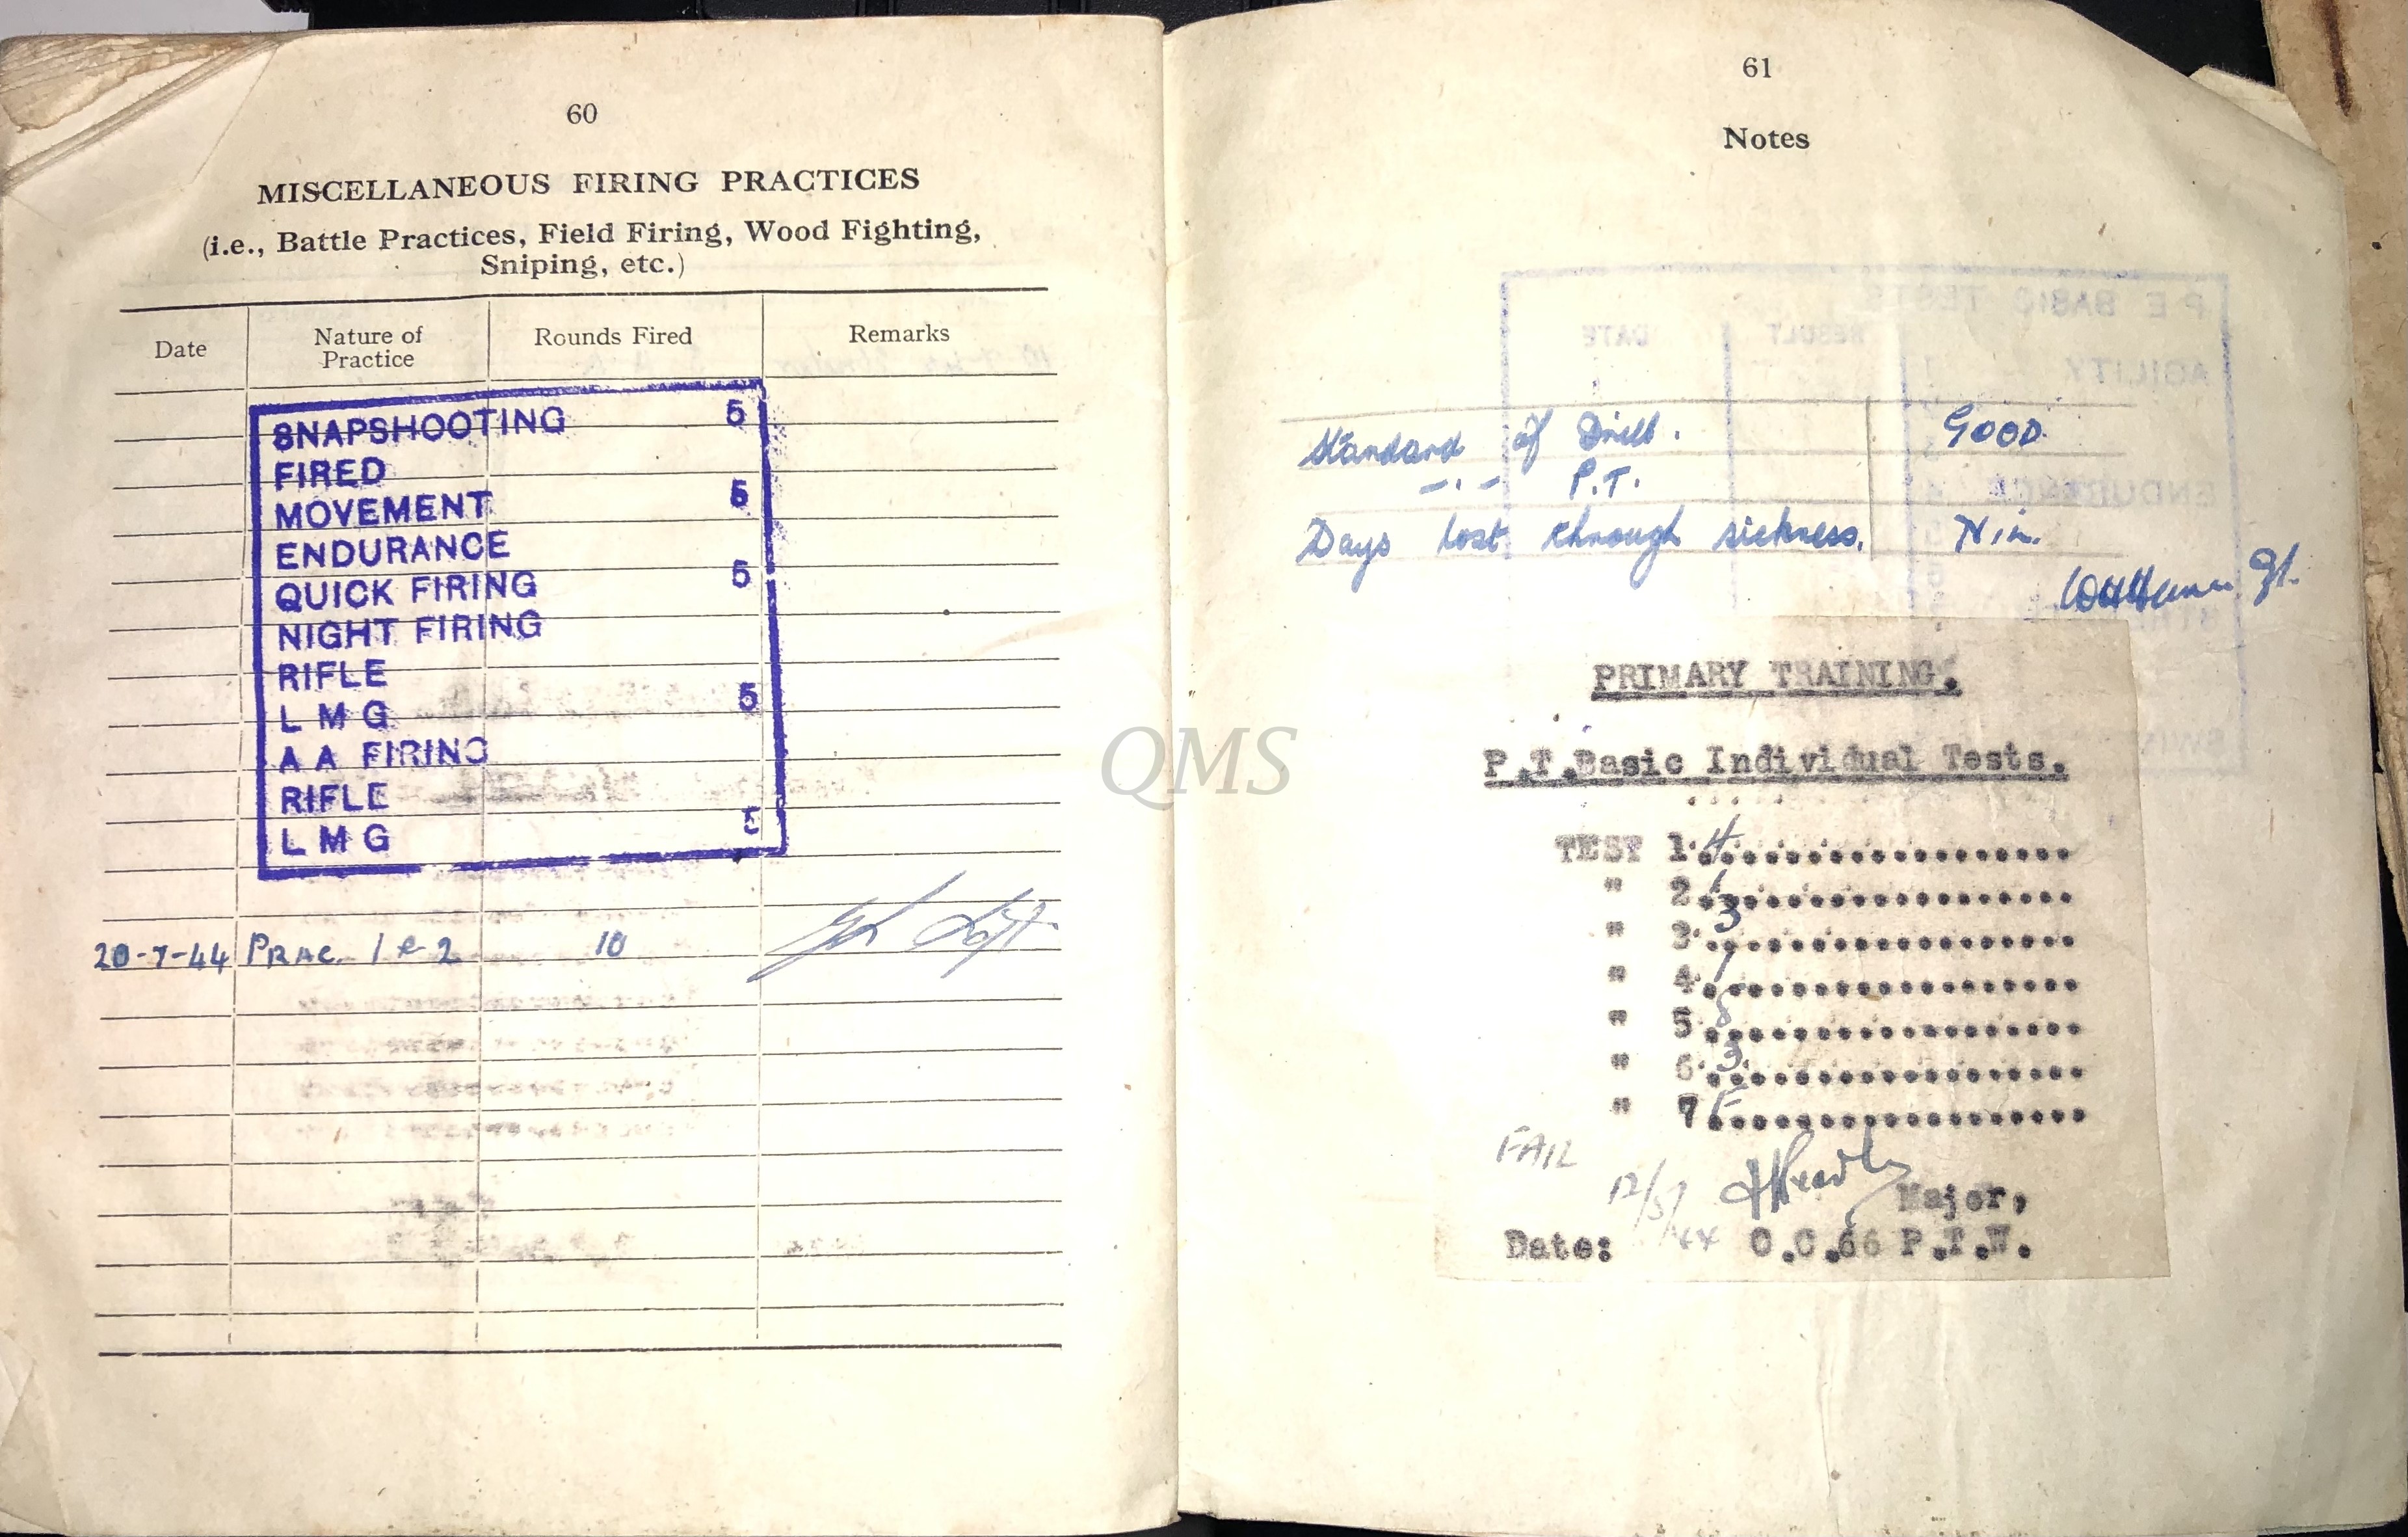 60
MISCELLANEOUS FIRING PRACTICES
(i.e., Battle Practices, Field Firing, Wood Fighting,
Sniping, etc.)
Date Nature of Practice Rounds Fired Remarks
SNAPSHOOTING 5
FIRED
MOVEMENT 5
ENDURANCE
QUICK FIRING 5
NIGHT FIRING
RIFLE
L M G 5
A A FIRING
RIFLE
L M G 5
20-7-44 PRAC. 1 & 2 10
61
Notes
P E BASIC TESTS
RESULT DATE
AGILITY
ENDURANCE
Standard of Drill. GOOD.
-.- P.T.
Days lost through sickness. Nil.
PRIMARY TRAINING.
P.T.Basic Individual Tests.
TEST 1. 4
" 2.
" 3. 3
" 4. 1
" 5. 8
" 6. 3
" 7
FAIL
12/5/44
Major,
Date: O.C.66 P.T.W.
QMS